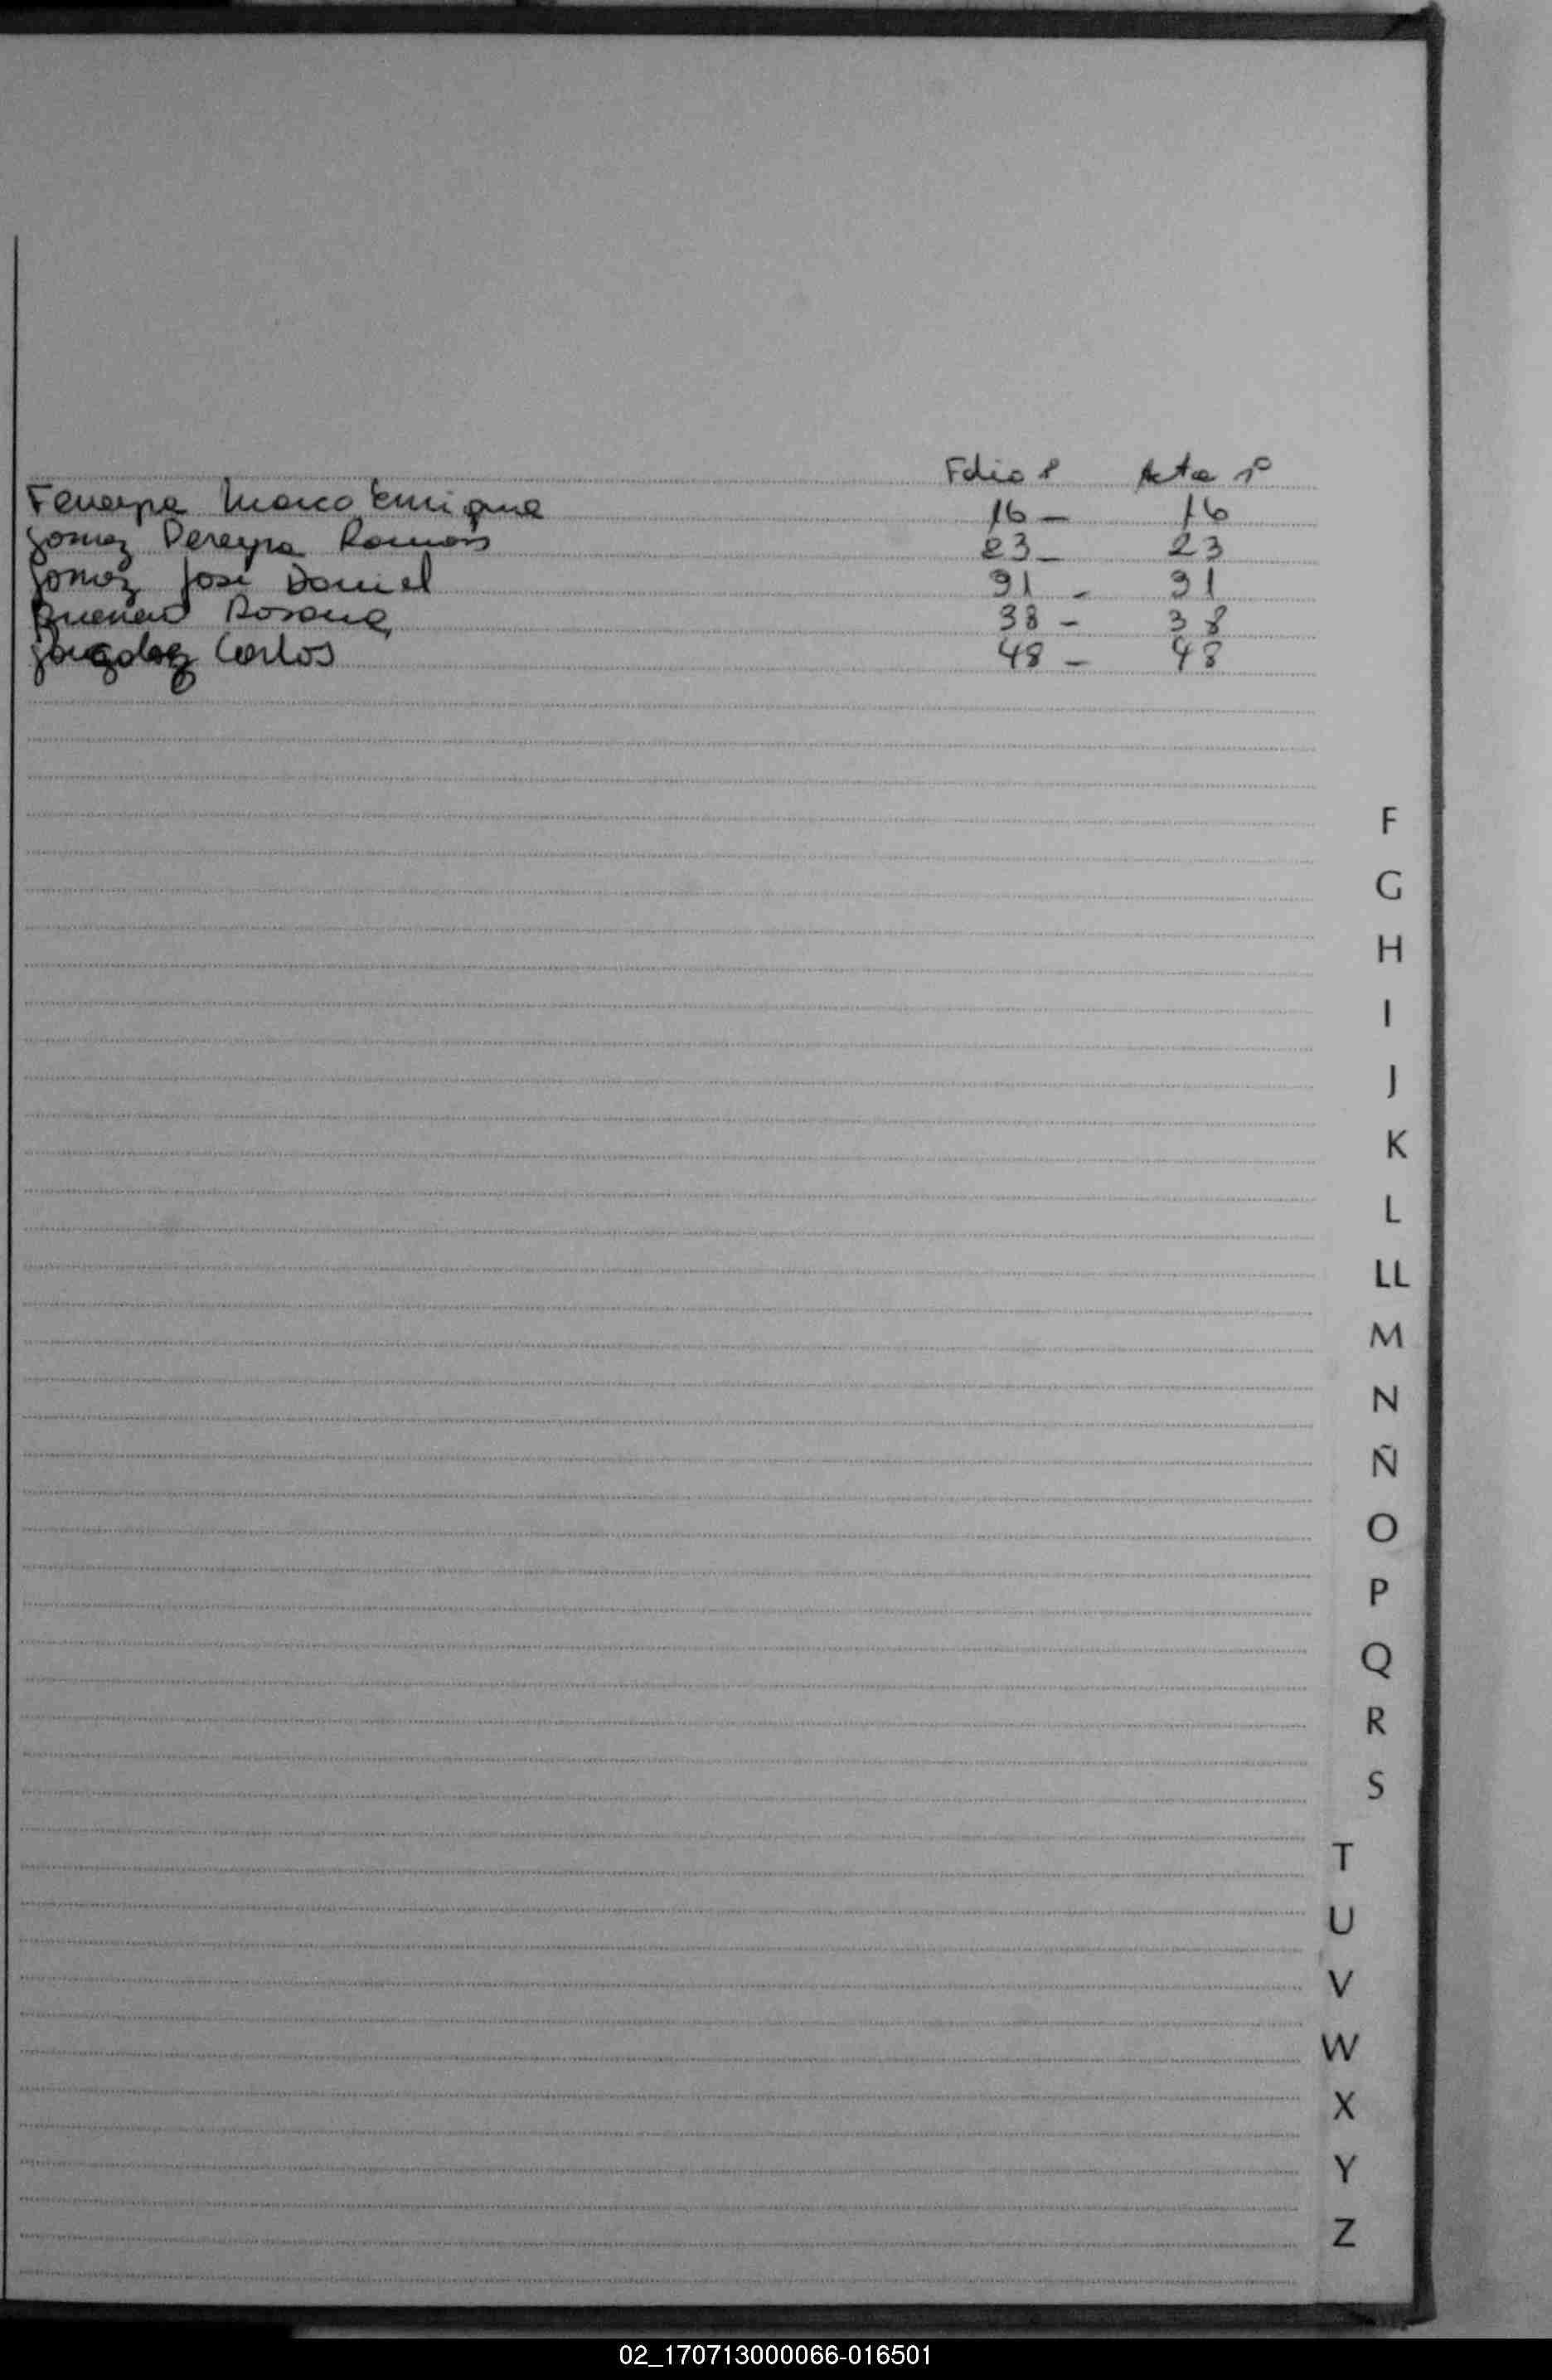 Folio º Acta nº
Marco Enrique 16 - 16
Gomez Pereyra Ramon 23 - 23
Gomez José Daniel 31 - 31
Rosana 38 - 38
Carlos 48 - 48
F
G
H
I
J
K
L
LL
M
N
Ñ
O
P
Q
R
S
T
U
V
W
X
Y
Z
02_170713000066-016501